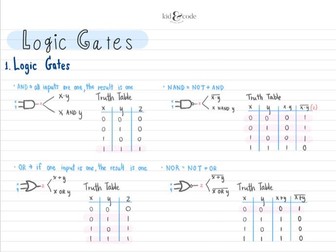 kid & code
Logic Gates
1. Logic Gates
• AND → all inputs are one, the result is one
x · y
x AND y
Truth Table
x y z
0 0 0
0 1 0
1 0 0
1 1 1
• NAND → NOT + AND
x · y
x NAND y
Truth Table
x y x·y x·y (z)
0 0 0 1
0 1 0 1
1 0 0 1
1 1 1 0
• OR → if one input is one, the result is one
x + y
x OR y
Truth Table
x y z
0 0 0
0 1 1
1 0 1
1 1 1
• NOR → NOT + OR
x + y
x OR y
Truth Table
x y x+y x+y
0 0 0 1
0 1 1 0
1 0 1 0
1 1 1 0